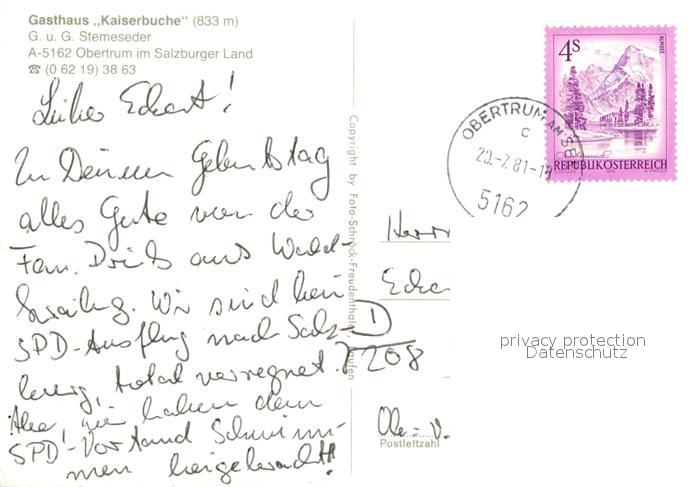 Gasthaus „Kaiserbuche“ (833 m)
G. u. G. Stemeseder
A-5162 Obertrum im Salzburger Land
☎ (0 62 19) 38 63
Lieber Eckart!
Zu Deinem Geburtstag
alles Gute von der
Fam. aus Wald-
Wir sind beim
SPD-Ausflug nach Salz-
burg, total verregnet.
Aber, wir haben dem
SPD-Vorstand Schwim-
men beigebracht!
Copyright by Foto-Schröck-Freudenthal
4S
ALMSEE
REPUBLIK ÖSTERREICH
OBERTRUM AM SEE
C
20.-7.81-1
5162
Herrn
Ecka
D
208
Postleitzahl
privacy protection
Datenschutz